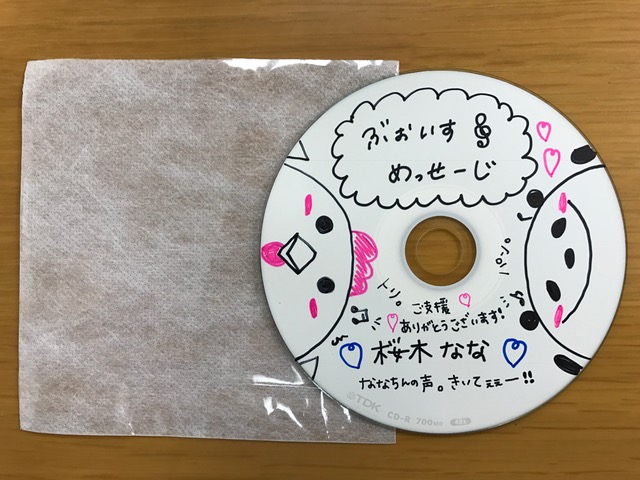 ぶぉいす
めっせーじ
パンダ。
トリ。
ご支援
ありがとうございます!
桜木 なな
ななちんの声。きいてぇぇー!!
TDK CD-R 700MB 48X